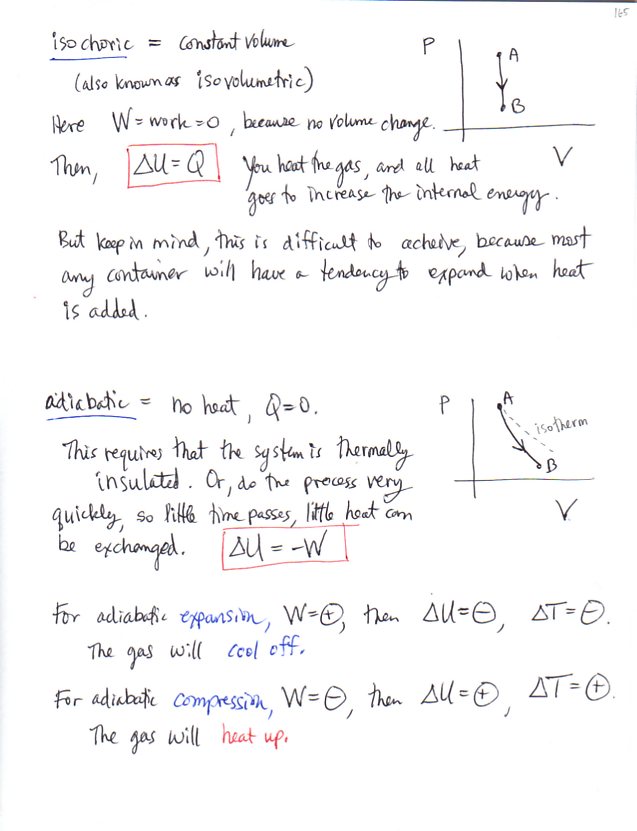 165
isochoric = constant volume
(also known as isovolumetric)
P
A
B
V
Here W = work = 0, because no volume change.
Then, ΔU = Q You heat the gas, and all heat
goes to increase the internal energy.
But keep in mind, this is difficult to acheive, because most
any container will have a tendency to expand when heat
is added.
adiabatic = no heat, Q=0.
P
A
isotherm
B
V
This requires that the system is thermally
insulated. Or, do the process very
quickly, so little time passes, little heat can
be exchanged. ΔU = -W
For adiabatic expansion, W=⊕, then ΔU=⊖, ΔT=⊖.
The gas will cool off.
For adiabatic compression, W=⊖, then ΔU=⊕, ΔT=⊕.
The gas will heat up.